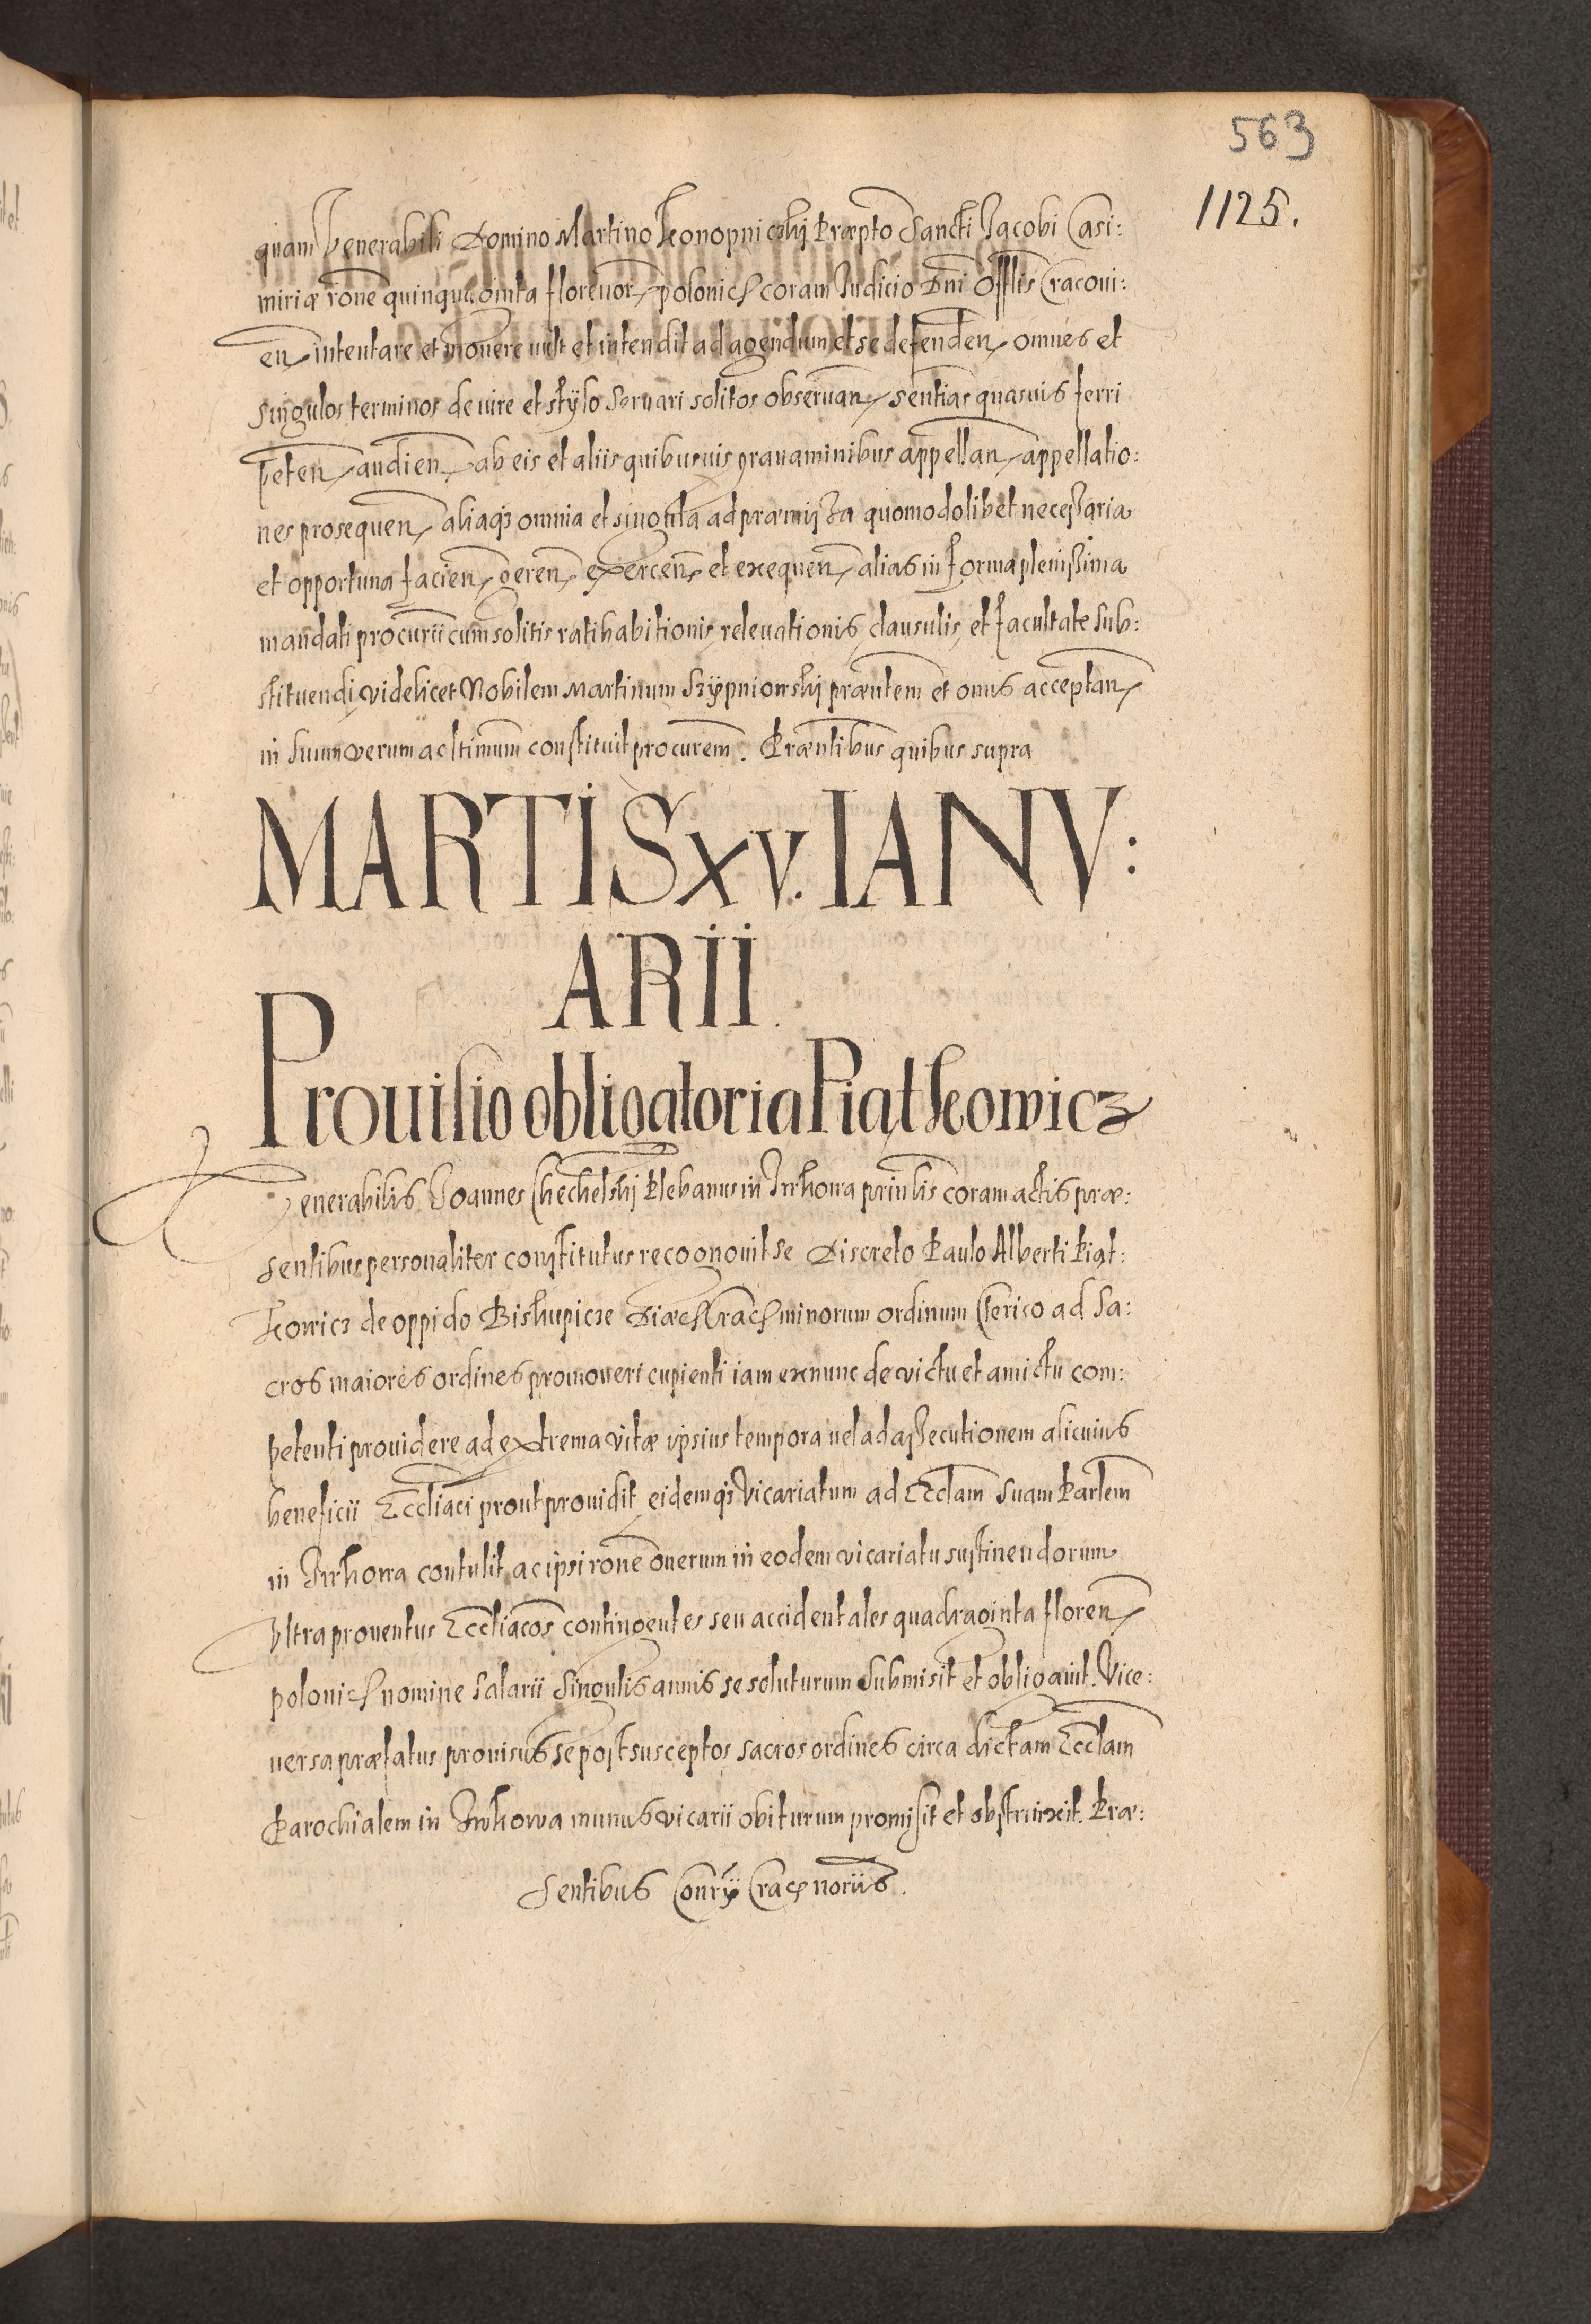 563
1125.
quam Venerabili Domino Martino Konopniczkij Præpto Sancti Jacobi Casi:
miriæ rone quinquaginta florenor polonich coram Iudicio Dni Offlis Cracoui:
en intentare et mouere uult et intendit ad agendum et se defenden omnes et
singulos terminos de iure et stÿlo seruari solitos obseruan sentias quasuis ferri
peten audien ab eis et aliis quibusuis grauaminibus appellan appellatio:
nes prosequen aliaqꝫ omnia et singula ad præmissa quomodolibet necessaria
et opportuna facien geren exercen et exequen alias in forma plenissima
mandati procurii cum solitis ratihabitionis releuationis clausulis et facultate sub:
stituendi videlicet Nobilem Martinum Szÿpniowskij præntem et onus acceptan
in suum verum ac ltimum constituit procurem. Præntibus quibus supra
MARTIS XV. IANV:
ARII.
Prouisio obligatoria Piątkowicz
Venerabilis Joannes Chechelskij Plebanus in Irzkowa priulis coram actis præ:
sentibus personaliter constitutus recognouit se Discreto Paulo Alberti Piąt:
kowicz de oppido Biskupicze Diæc Crac minorum ordinum Clerico ad Sa:
cros maiores ordines promoueri cupienti iam exnunc de victu et amictu com:
petenti prouidere ad extrema vitæ ipsius tempora uel ad assecutionem alicuius
beneficii Eccliaci prout prouidit eidemqꝫ Vicariatum ad Ecclam suam Parlem
in contulit ac ipsi rone onerum in eodem vicariatu sustinendorum
Vltra prouentus Eccliacos contingentes seu accidentales quadraginta floren
polonich nomine salarii singulis annis se soluturum submisit et obligauit. Vice:
uersa præfatus prouisus se post susceptos sacros ordines circa dictam Ecclam
Parochialem in munus vicarii obiturum promisit et obstrinxit. Præ:
sentibus Conrÿ Crac noriis.